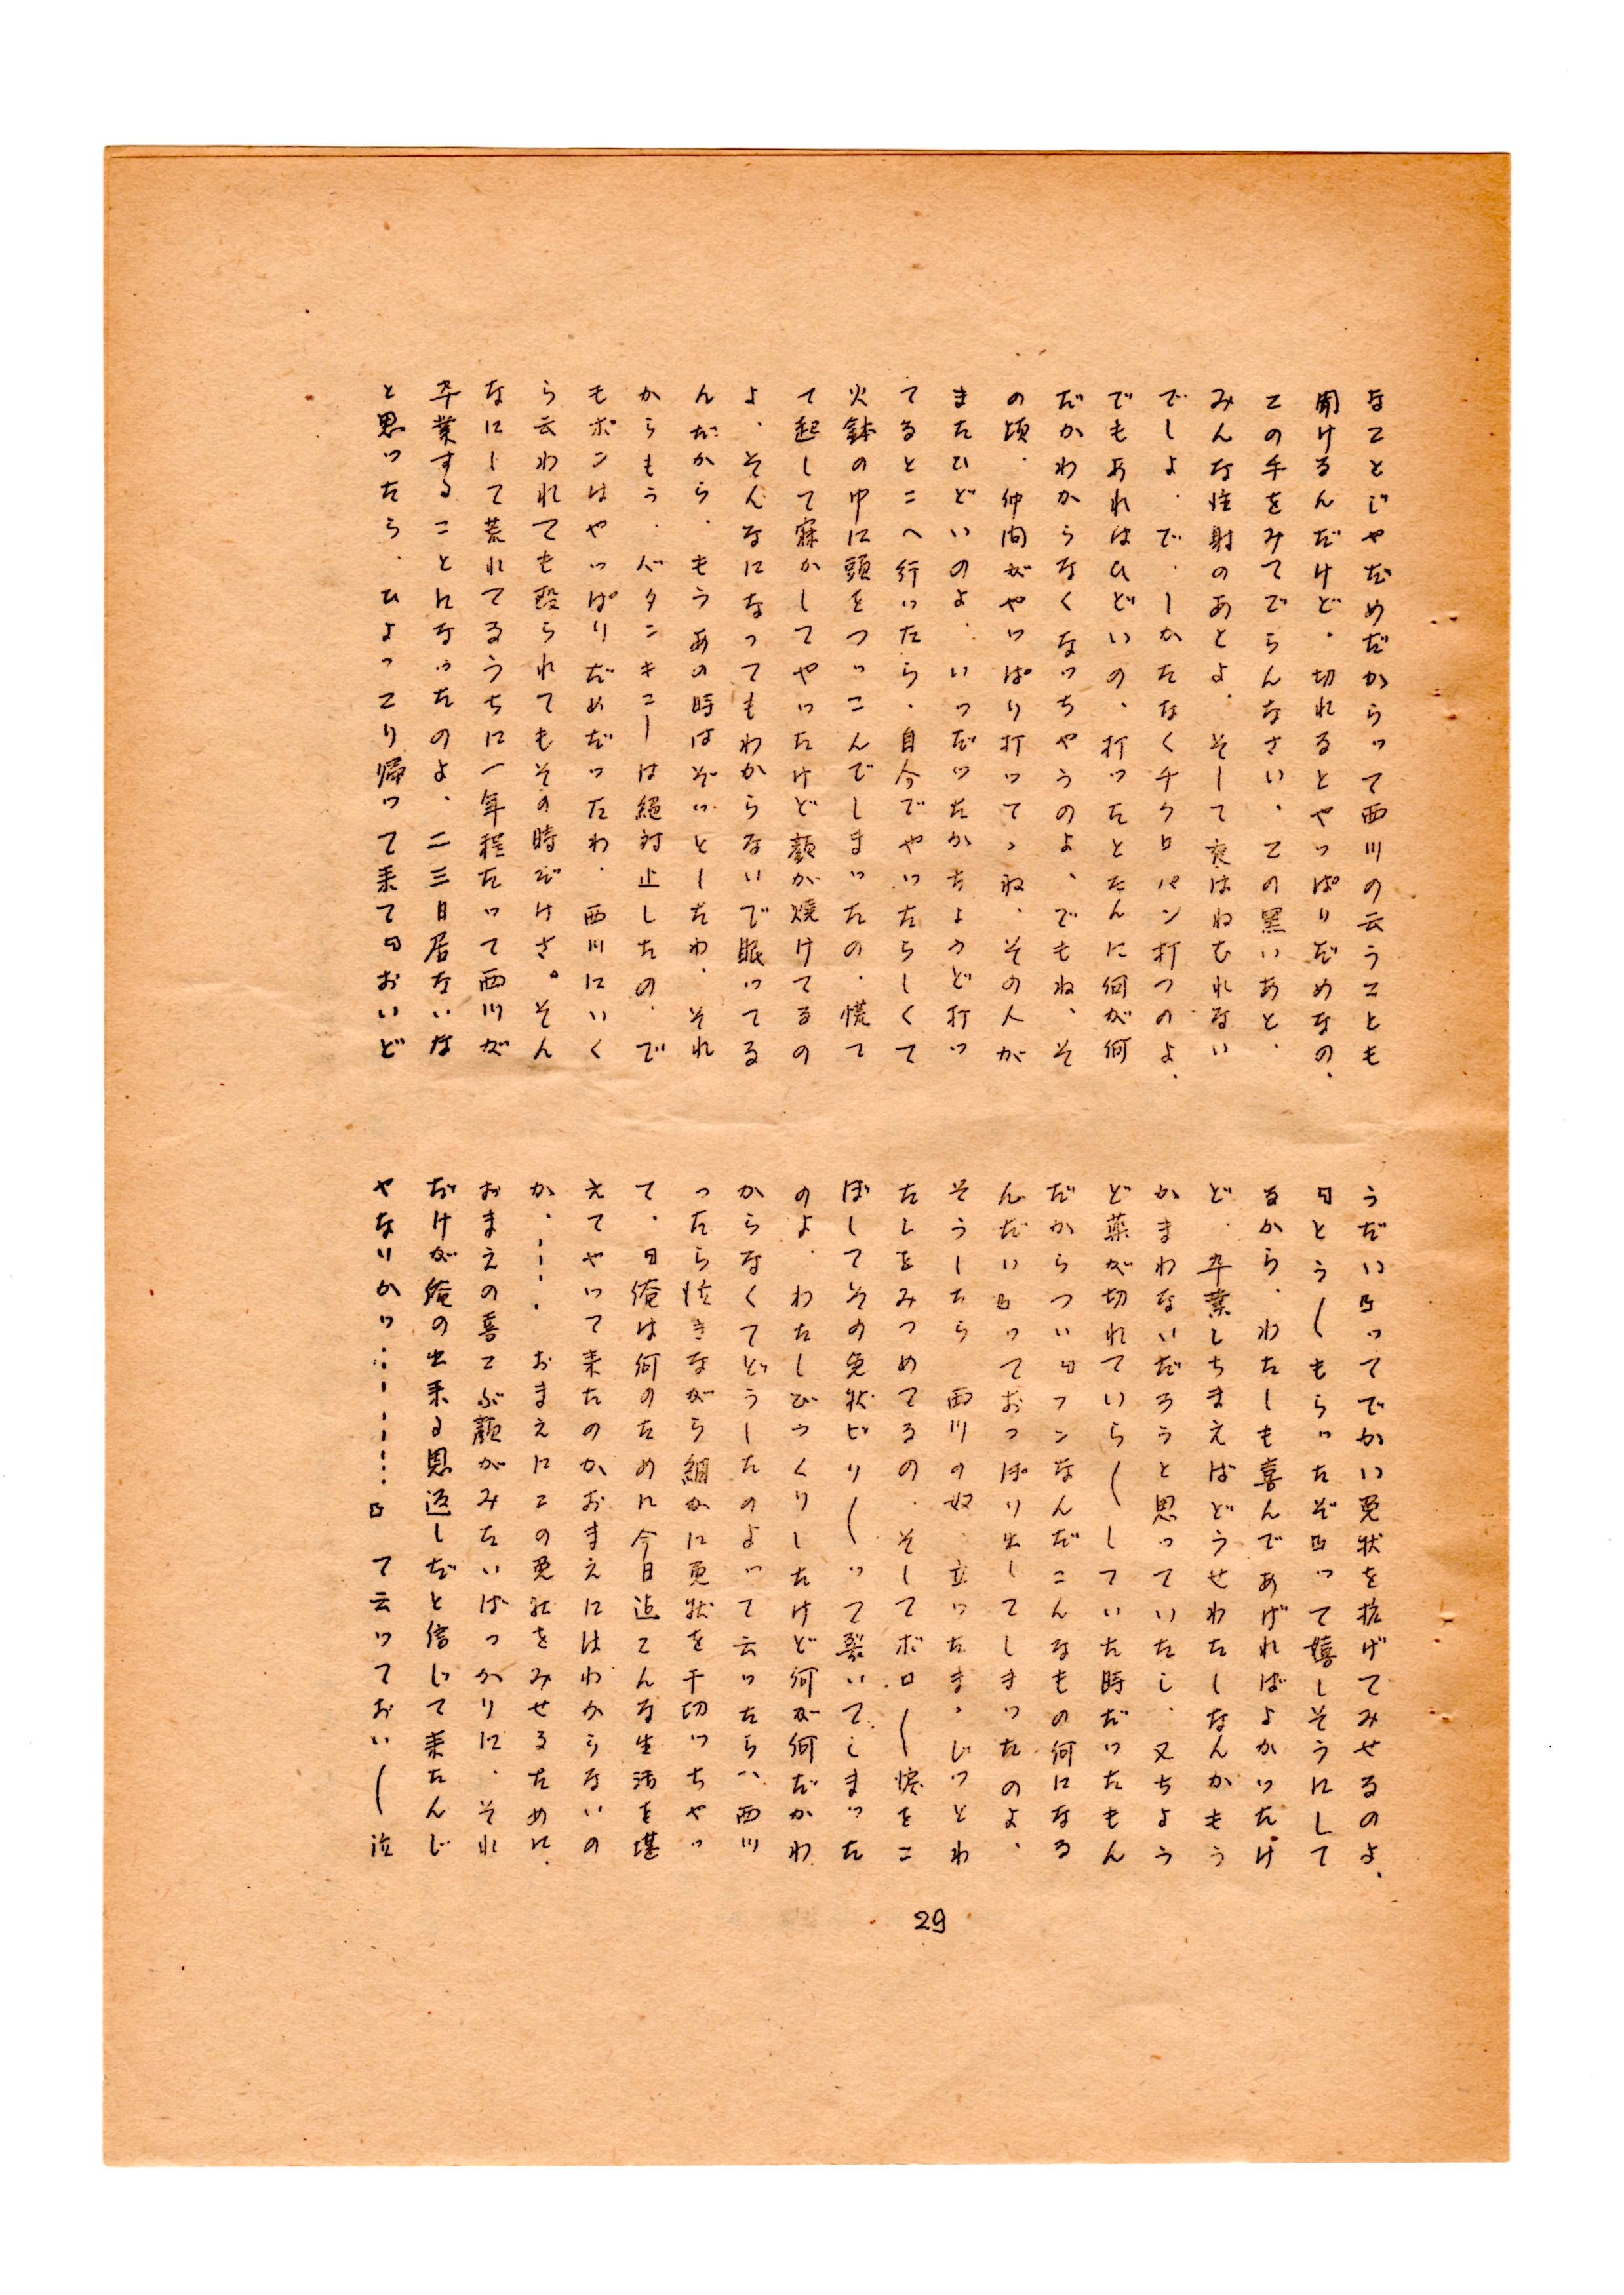 なことじゃだめだからって西川の云うことも
聞けるんだけど、切れるとやっぱりだめなの、
この手をみてごらんなさい、この黒いあと、
みんな注射のあとよ、そして夜はねむれない
でしょ、で、しかたなくチクロパン打つのよ、
でもあれはひどいの、打ったとたんに何が何
だかわからなくなっちゃうのよ、でもね、そ
の頃、仲間がやっぱり打ってゝね、その人が
またひどいのよ、いつだったかちょうど打っ
てるとこへ行ったら、自分でやったらしくて
火鉢の中に頭をつっこんでしまったの、慌て
て起して寐かしてやったけど顔が焼けてるの
よ、そんなになってもわからないで眠ってる
んだから、もうあの時はぞっとしたわ、それ
からもう、バタンキューは絶対止したの、で
もポンはやっぱりだめだったわ、西川にいく
ら云われても殴られてもその時だけさ。そん
なにして荒れてるうちに一年程たって西川が
卒業することになったのよ、二三日居ないな
と思ったら、ひょっこり帰って来て『おいど
うだい』ってでかい免状を拡げてみせるのよ、
『とう〳〵もらったぞ』って嬉しそうにして
るから、わたしも喜んであげればよかったけ
ど、卒業しちまえばどうせわたしなんかもう
かまわないだろうと思っていたし、又ちょう
ど薬が切れていら〳〵していた時だったもん
だからつい『フンなんだこんなもの何になる
んだい』っておっぽり出してしまったのよ、
そうしたら 西川の奴、立ったまゝじっとわ
たしをみつめてるの、そしてボロ〳〵涙をこ
ぼしてその免状ビリ〳〵って裂いてしまった
のよ、わたしびっくりしたけど何が何だかわ
からなくてどうしたのよって云ったら、西川
ったら泣きながら細かに免状を千切っちゃっ
て、『俺は何のために今日迄こんな生活を堪
えてやって来たのかおまえにはわからないの
か、…… おまえにこの免状をみせるために、
おまえの喜こぶ顔がみたいばっかりに、それ
だけが俺の出来る恩返しだと信じて来たんじ
ゃないかッ…………』て云っておい〳〵泣
29